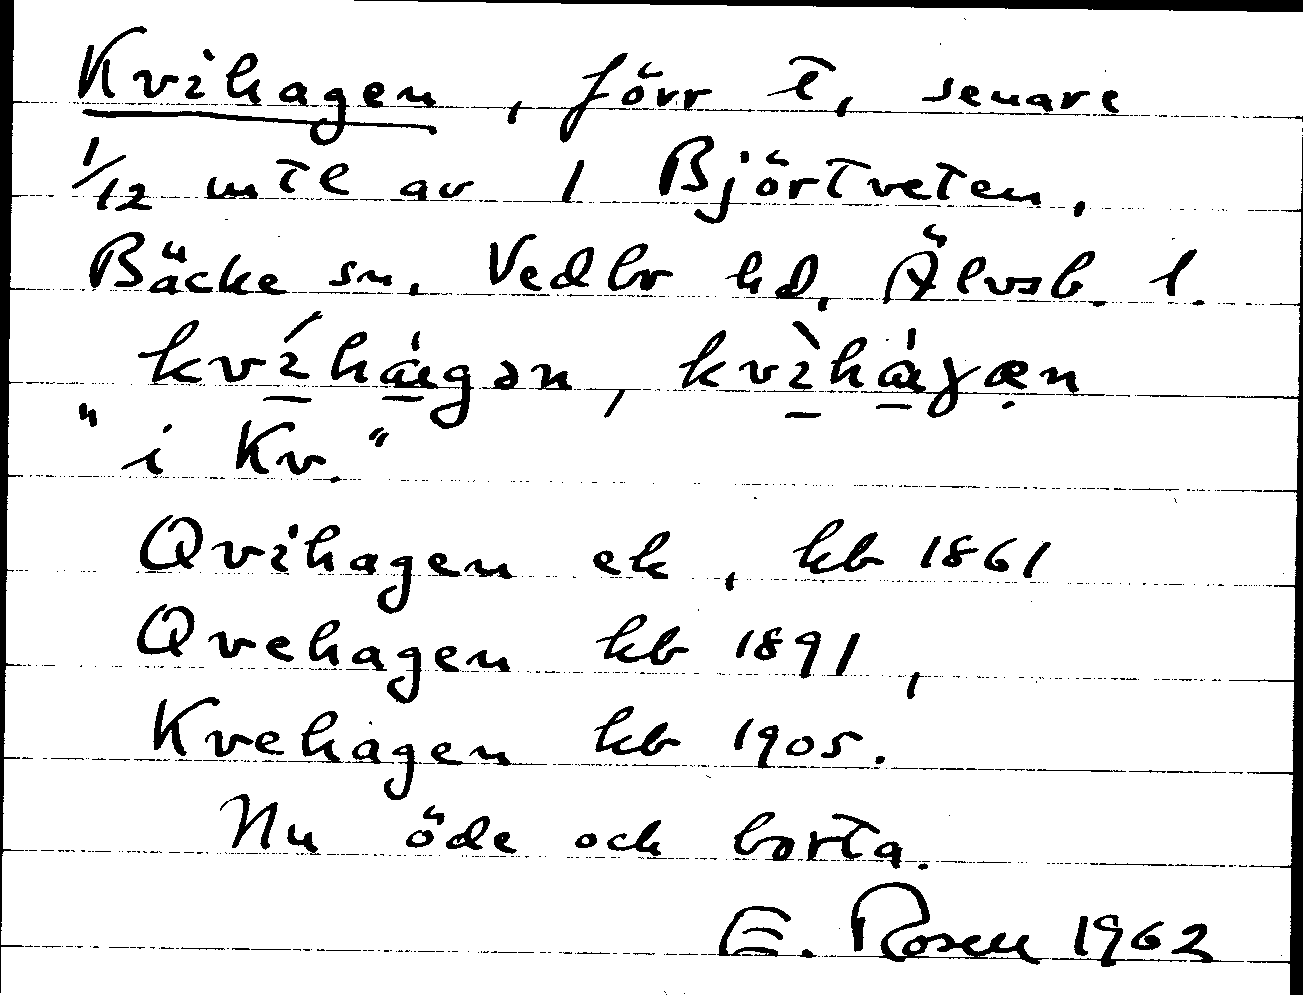 Kvihagen, förr t, senare
1/12 mtl av 1 Björtveten,
Bäcke sn, Vedbo hd, Älvsb. l.
kvíhágən, kvìháɣæn
"i Kv."
Qvihagen ek, kb 1861
Qvehagen kb 1891,
Kvehagen kb 1905.
Nu öde och borta.
E. Rosen 1962